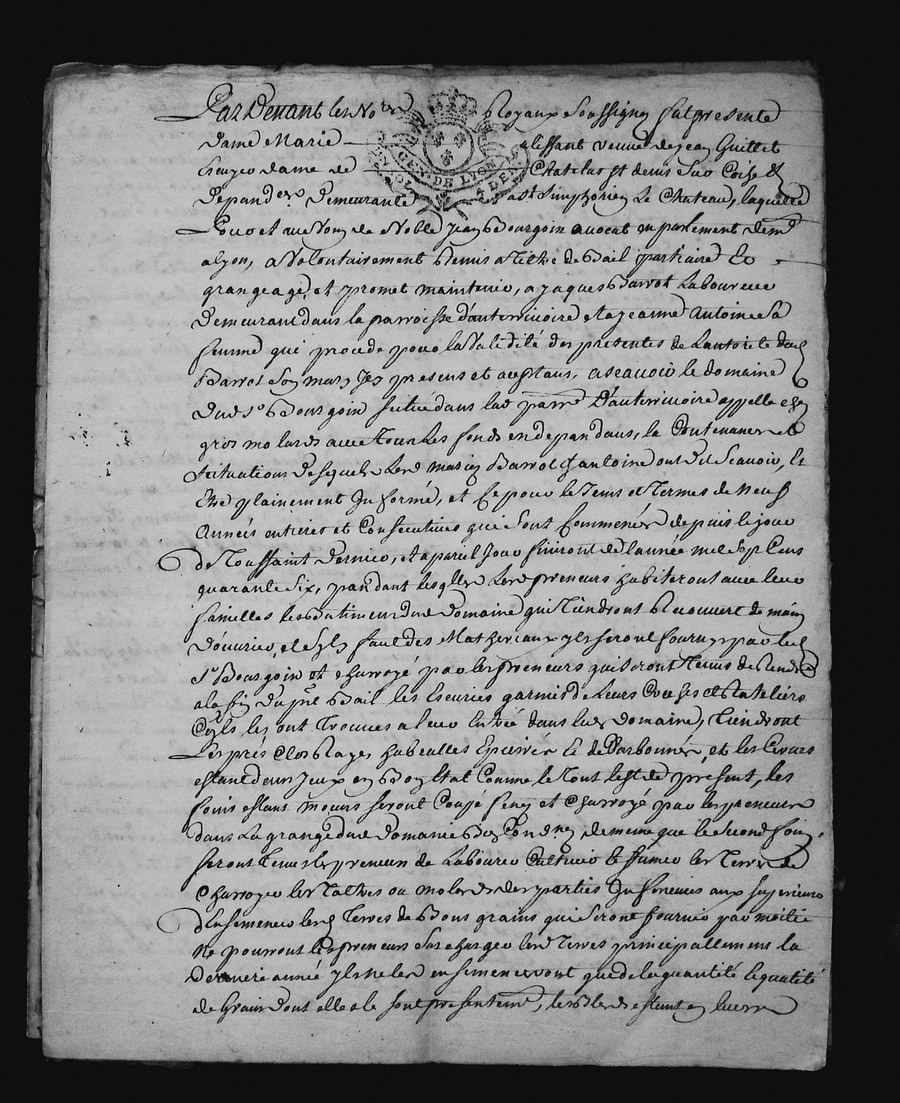 Par Devant les No.res Royaux Soussignes fut presente
Dame Marie alissant veuve de jean Guillet
Ecuyer dame de Chatelus st denis Sur Coise &
Depand.es Demeurante a st Simphorien Le Chateau, laquelle
GEN. DE LYON
a lyon, a volontairement Remis a titre de Bail partiaire &
grangeage, et promet maintenir, a jaques Barrot Laboureur
Demeurant dans la parroisse d'auterivoire et a jeanne antoine Sa
femme qui procede pour la validité des presentes de Lautorité dud
Barrot Son mary Icy presens et acceptans, a scavoir le domaine
Dud Sr Bourgoin scitué dans lad parr.e D'auterivoire appellé chez
gros molard avec tous Les fonds en dependans, la Contenance et
scituations Desquels Lesd mariez Barrot & antoine ont dit Scavoir, Et
Etre plainement Informé, et Ce pour le tems et termes de neuf
Années entieres et Consecutives qui Sont Commencées depuis le jour
de Toussaint Dernier, et a pareil Jour finiront de lannée mil Sept Cens
quarante Six, pandant lesqlles Lesd preneurs habiteront avec leur
familles les batimens dud Domaine qui tiendront Recouvert de main
D'ouvrier, et Sy Il faut des Matheriaux yls seront fournys par led
Sr Bourgoin et charroyé par les preneurs qui Seront tenus de Rendre
a la fin du pnt Bail les Ecuries garnies de Leurs Creches et Rateliers
Cõe Ils les ont trouvées a leur Entrée dans led Domaine, tiendront
Les prés Clos
estans d'eux Jceux en Bon Etat Comme le tout Est de présent, les
foins estans meurs seront Coupé fené et Charroyé par les preneurs
dans La grange dud Domaine Bien Conditionnés, de meme que le Second foin,
Seront tenus les preneurs de Labourer Cultiver & fumer les Terres de
Charroyer les des parties Inferieures aux superieures
D'Ensemencer lesd Terres de Bons grains qui Seront fournis par moitié
Ne pourront les preneurs Surcharger lesd Terres principallement la
Derniere année yls ne les ensemenceront que de la quantité & qualité
de Grain dont elles le sont presentem.t, les Bleds estant en